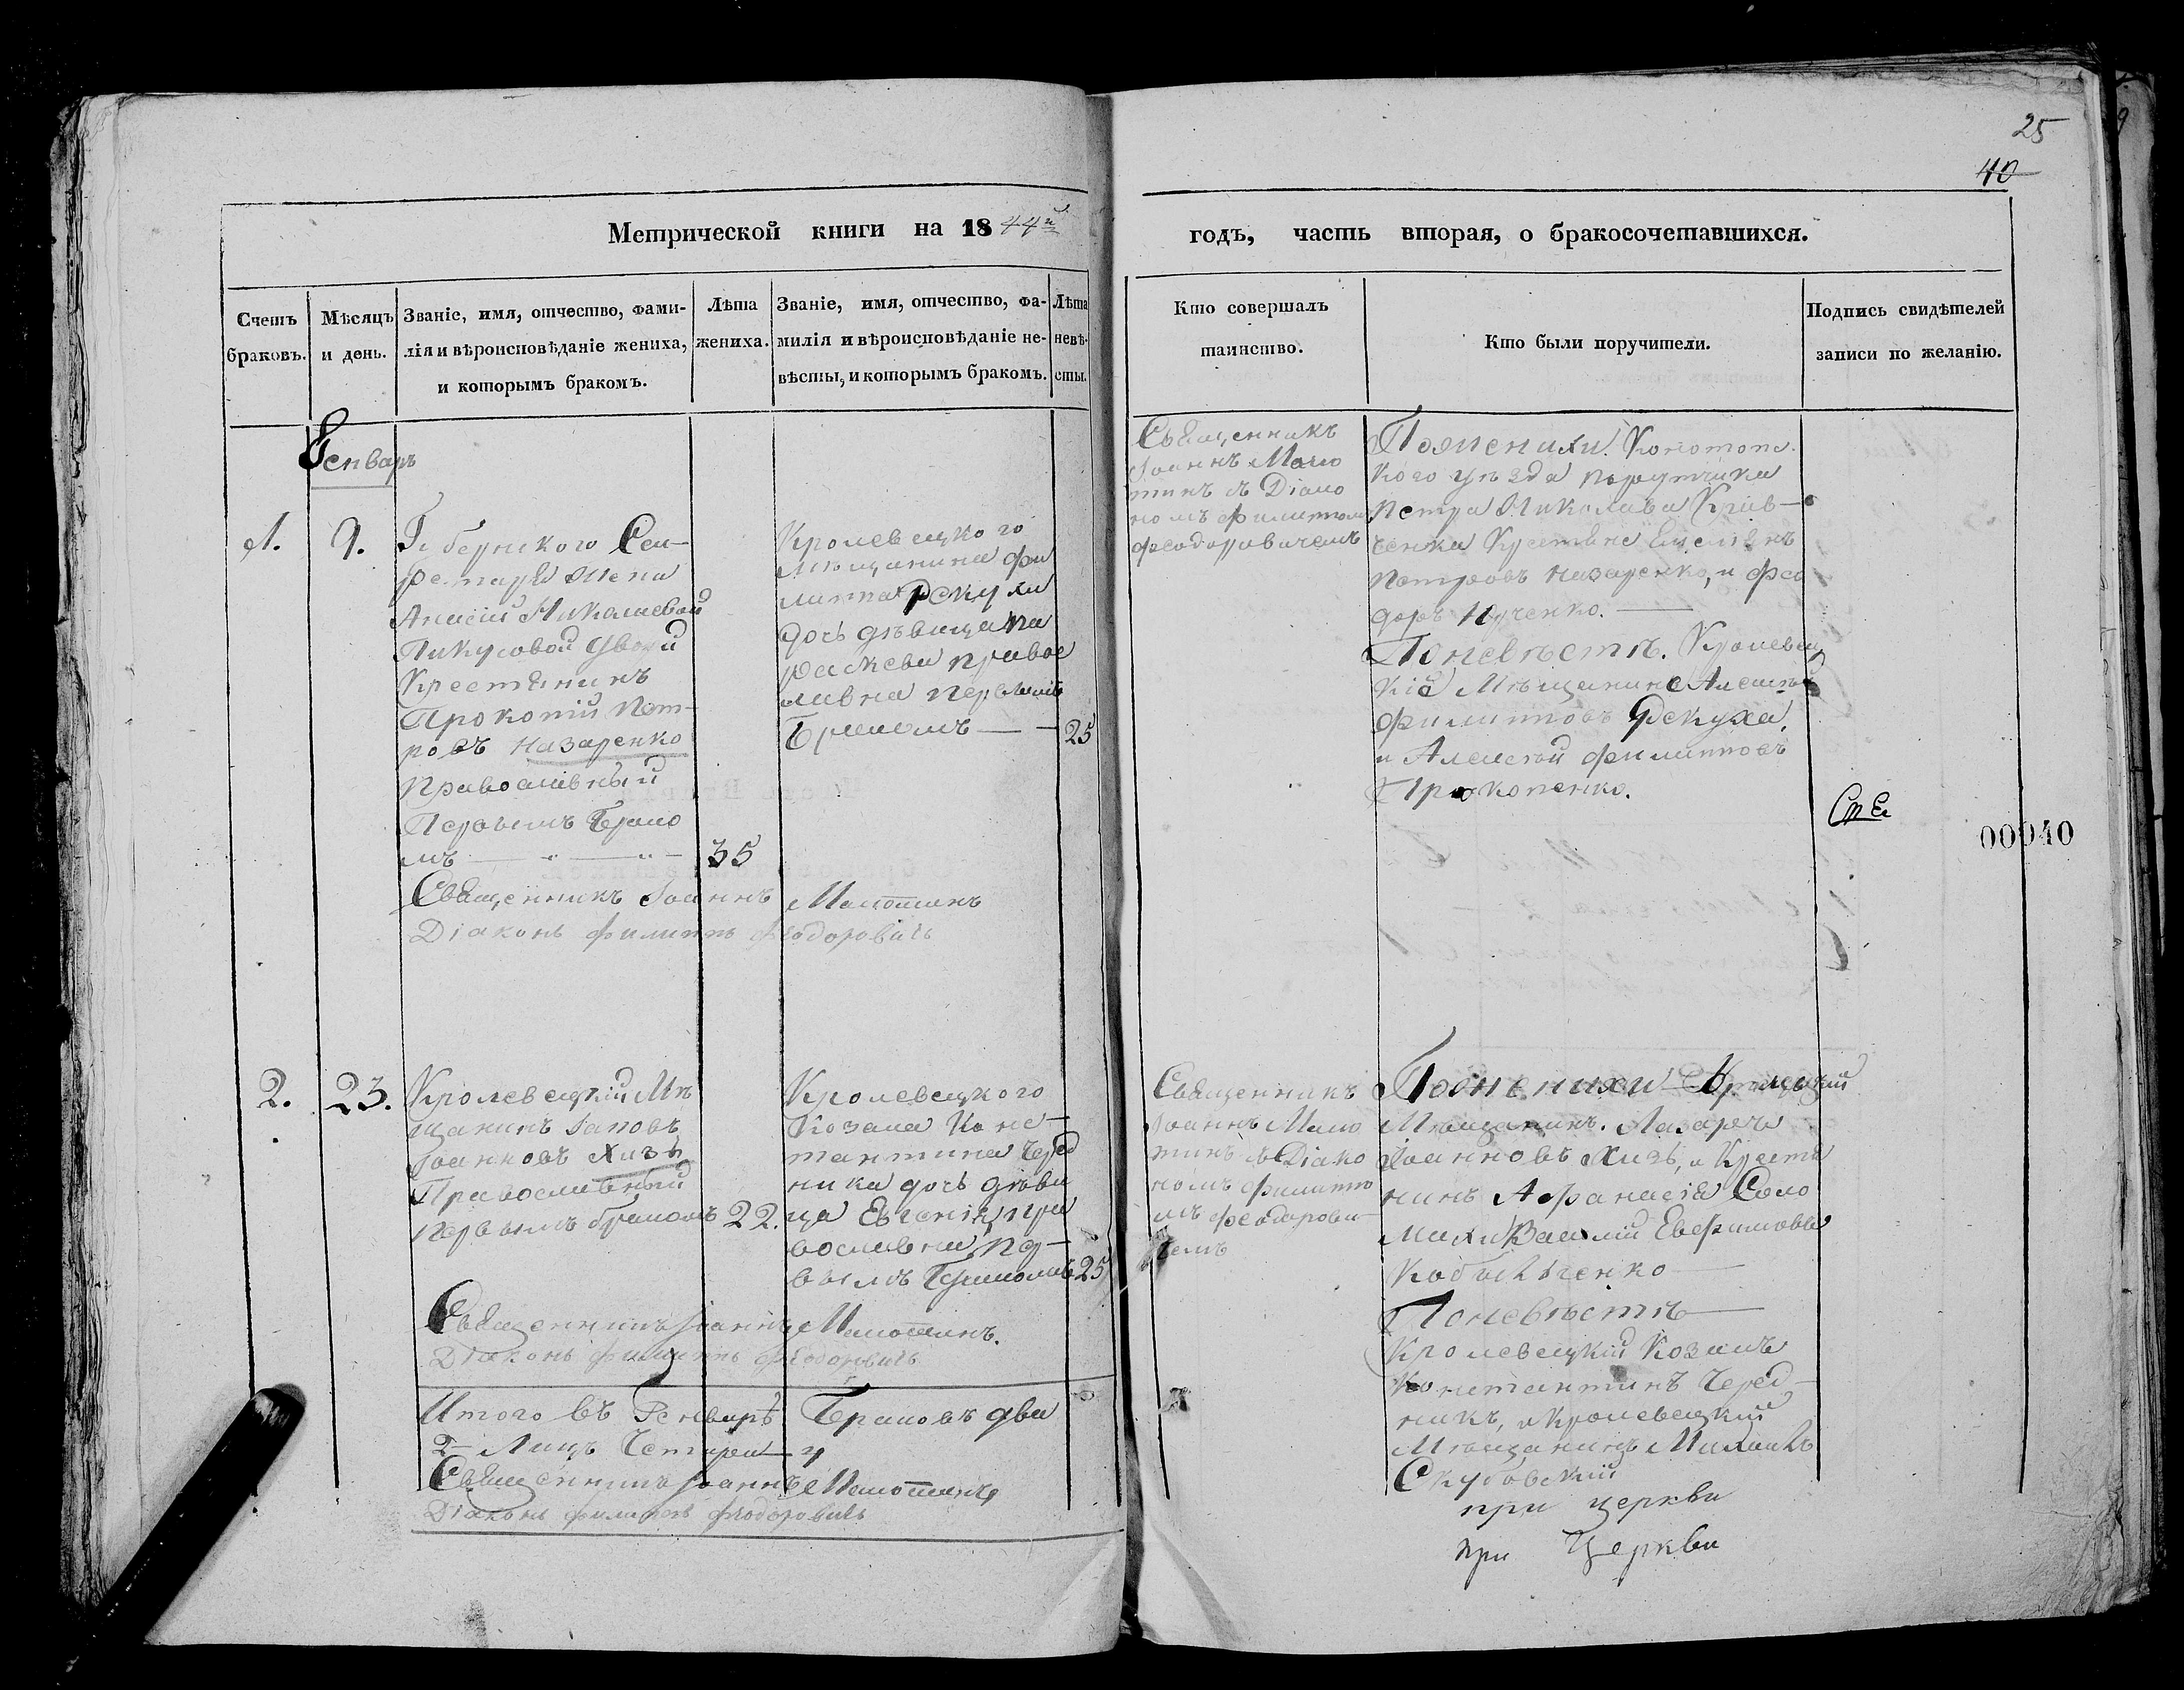 25
40
Метрической книги на 1844й
годъ, часть вторая, о бракосочетавшихся.
Счетъ
браковъ.
Мѣсяцъ
и день.
Званіе, имя, отчество, фами-
лія и вѣроисповѣданіе жениха,
и которымъ бракомъ.
Лѣта
жениха.
Званіе, имя, отчество, фа-
милія и вѣроисповѣданіе не-
вѣсты, и которымъ бракомъ.
Лѣта
невѣ-
сты.
Кто совершалъ
таинство.
Кто были поручители.
Подпись свидѣтелей
записи по желанію.
Генварь
1.
9.
Губернского Сек-
ретаря
Николаевой
Крестянинъ
Прокопій Пет-
ровъ Назаренко
Православный
Первымъ Брако
мъ
35
Кролевецкого
мѣщанина Фи
липпа Рекухи
дочь дѣвица Па
раскева правос
лавна первымъ
Бракомъ
25
Священникъ
Іоаннъ
съ Діако
номъ Филиппомъ
Феодоровичемъ
По женихи. Конотопс
кого уѣзда поручика
Петра Николаева
Крестяне
Петровъ Назаренко, и Фео
доръ
По невѣстѣ. Кролевец
кіе Мѣщанине
Филипповъ Рекуха,
и Алексѣй Филипповъ
Прокопенко.
00040
Священникъ Іоаннъ
Діаконъ Филиппъ Феодоровичь
2.
23.
Кролевецкій Мѣ
щанинъ
Іоанновъ Хизь
Православный
первымъ бракомъ
22.
Кролевецкого
Козака Конс-
тантина Черед
ника дочь дѣви
ца Евгенія, пра
вославна, пер-
вымъ Бракомъ
25
Священникъ
Іоаннъ
съ Діако
номъ Филиппо
мъ Феодорови-
чемъ
По женихи
Мѣщанинъ. Лазарь
Іоанновъ Хизь, и Крестя
нинъ Афанасія Соло
махи Василій Евфимовъ
По невѣстѣ
Кролевецкій Козакъ
Константинъ Черед-
никъ, и Кролевецкій
Мѣщанинъ Михаилъ
Скубовскій
при церкви
при Церкви
Священникъ Іоаннъ
Діаконъ Филиппъ Феодоровичь
Итого въ Генварѣ Браковъ два
2 Лицъ Четыри 4
Священникъ Іоаннъ
Діаконъ Филиппъ Феодоровичь